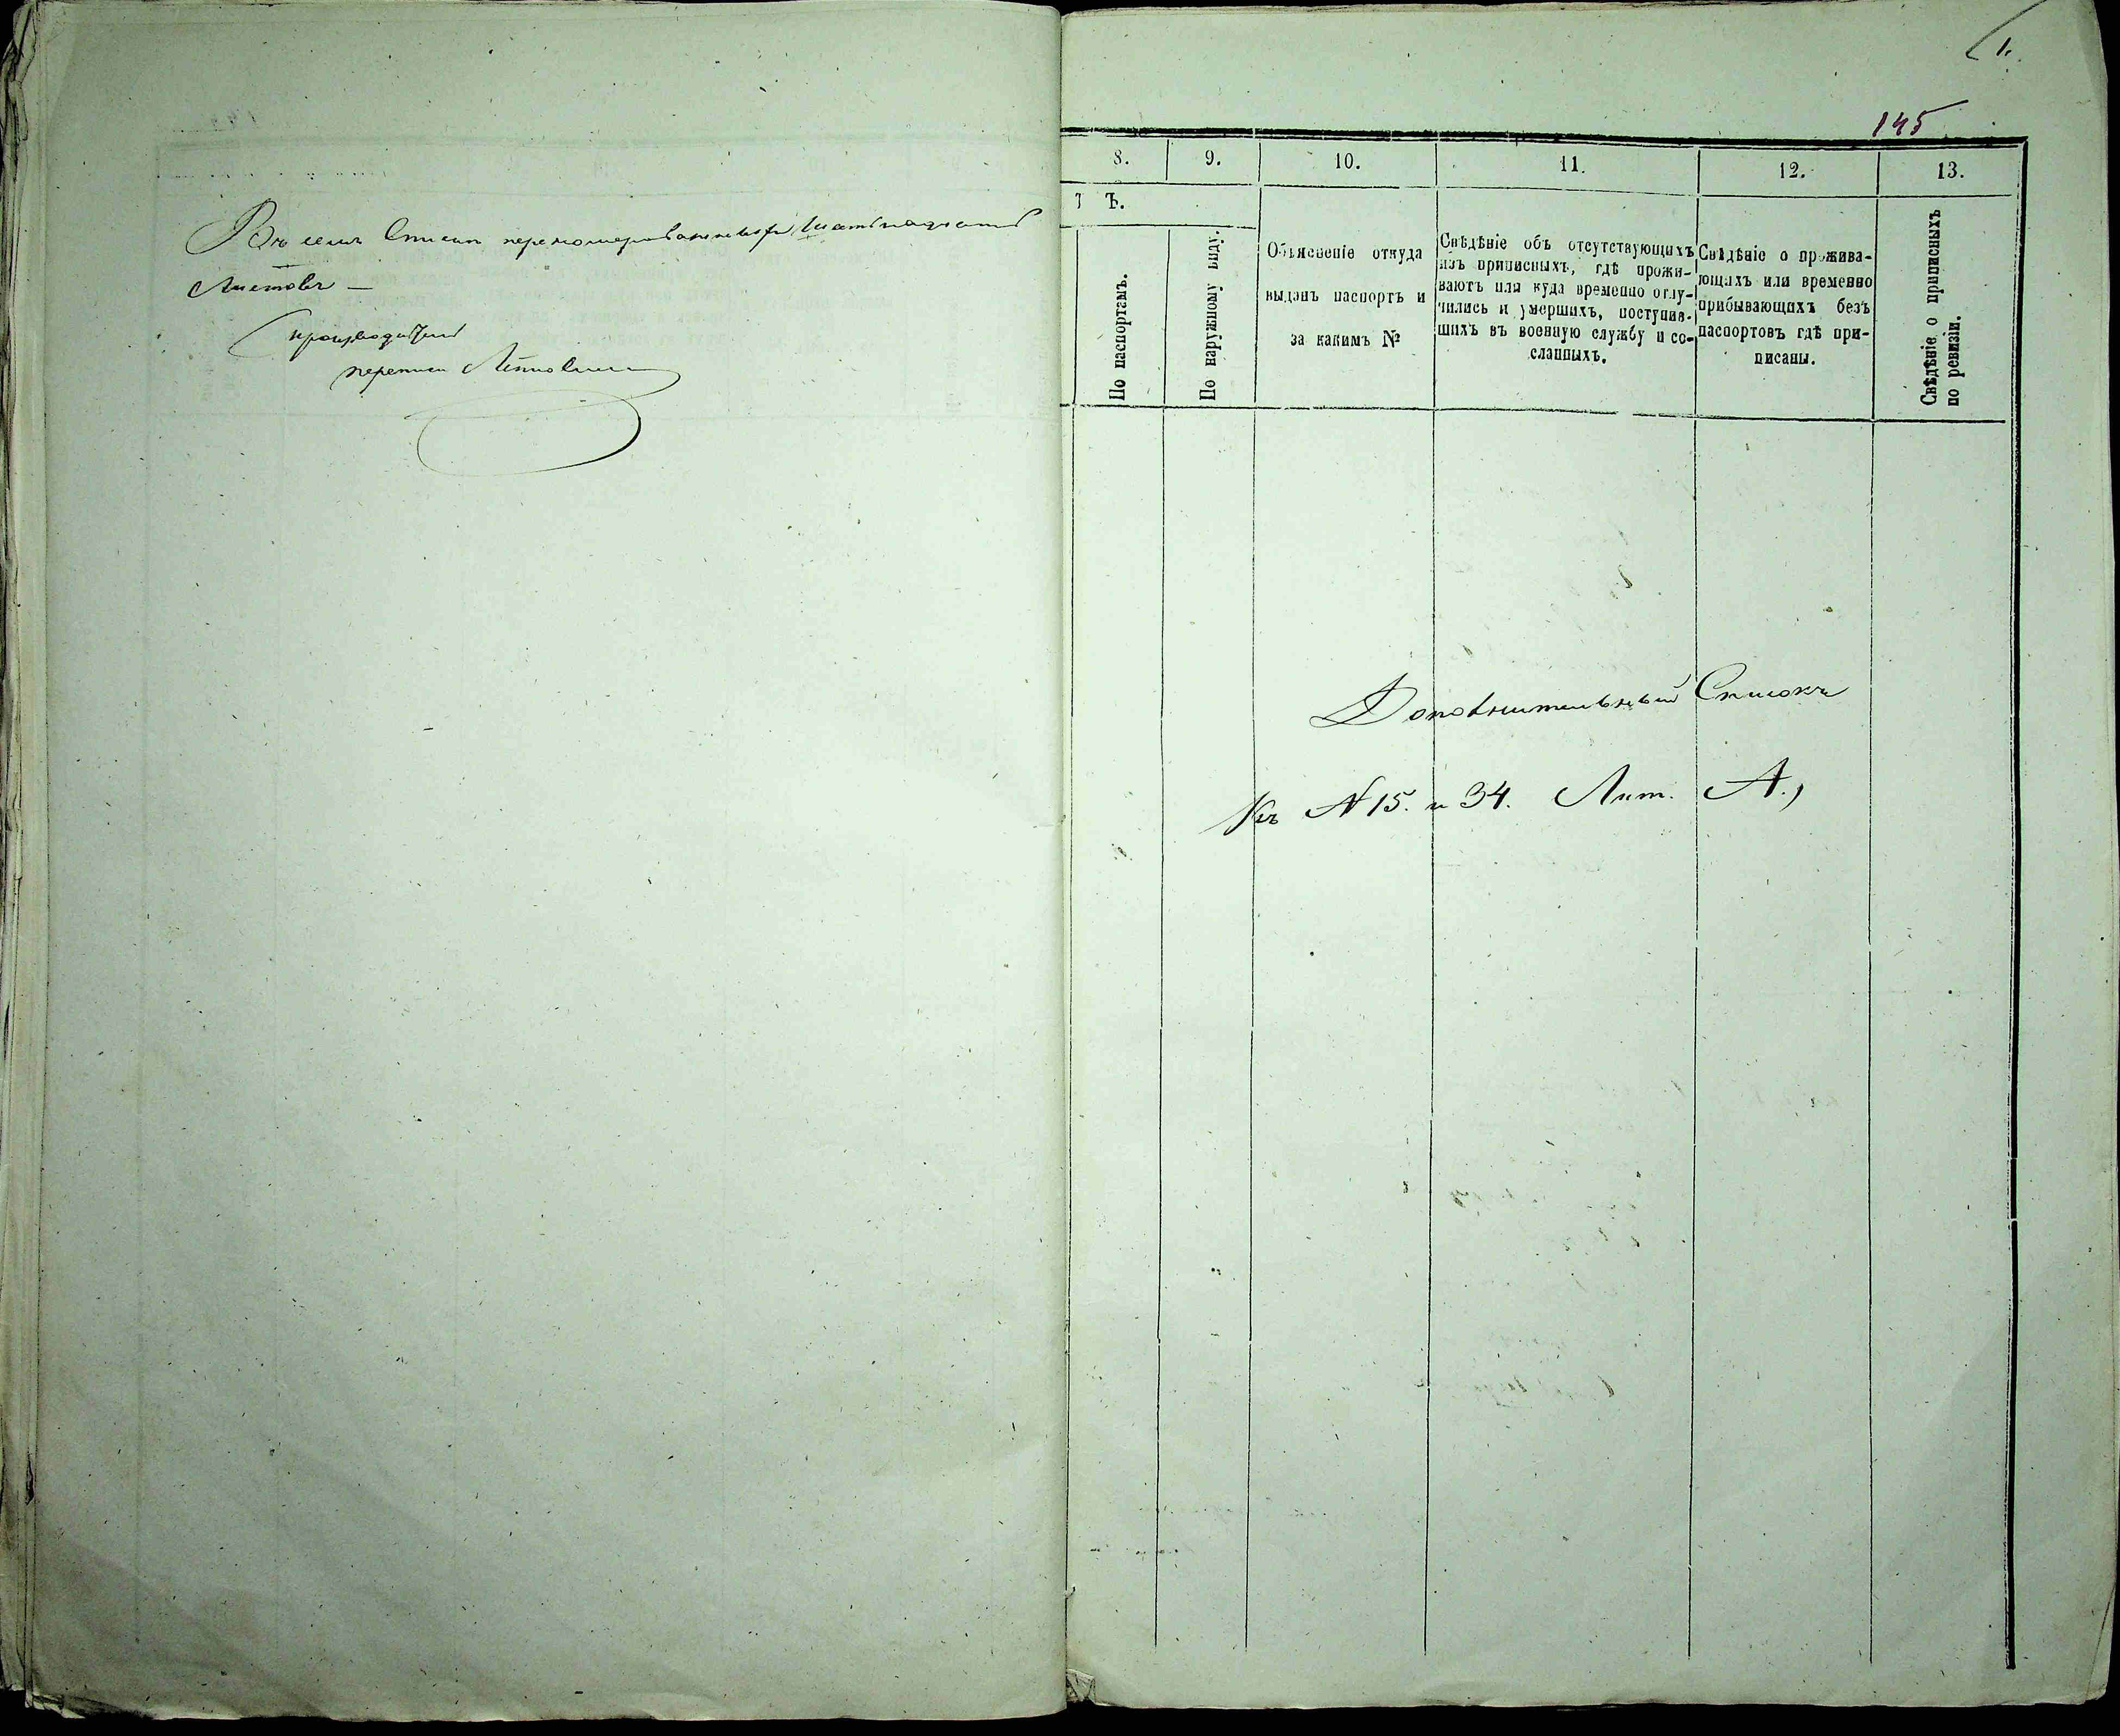 Въ семъ Списке перенумерованныхъ шестнадцать
Листовъ —
производитель
переписи
1.
145
8. 9. 10. 11. 12. 13.
Ъ.
По паспортамъ.
По наружному виду.
Объясненіе откуда
выданъ паспортъ и
за какимъ №
Свѣдѣніе объ отсутствующихъ
изъ приписныхъ, гдѣ прожи-
ваютъ или куда временно отлу-
чились и умершихъ, поступив-
шихъ въ военную службу и со-
сланныхъ.
Свѣдѣніе о прожива-
ющихъ или временно
прибывающихъ безъ
паспортовъ гдѣ при-
писаны.
Свѣдѣніе о приписныхъ
по ревизіи.
Дополнительный Списокъ
Къ № 15. и 34. Лит. А.,